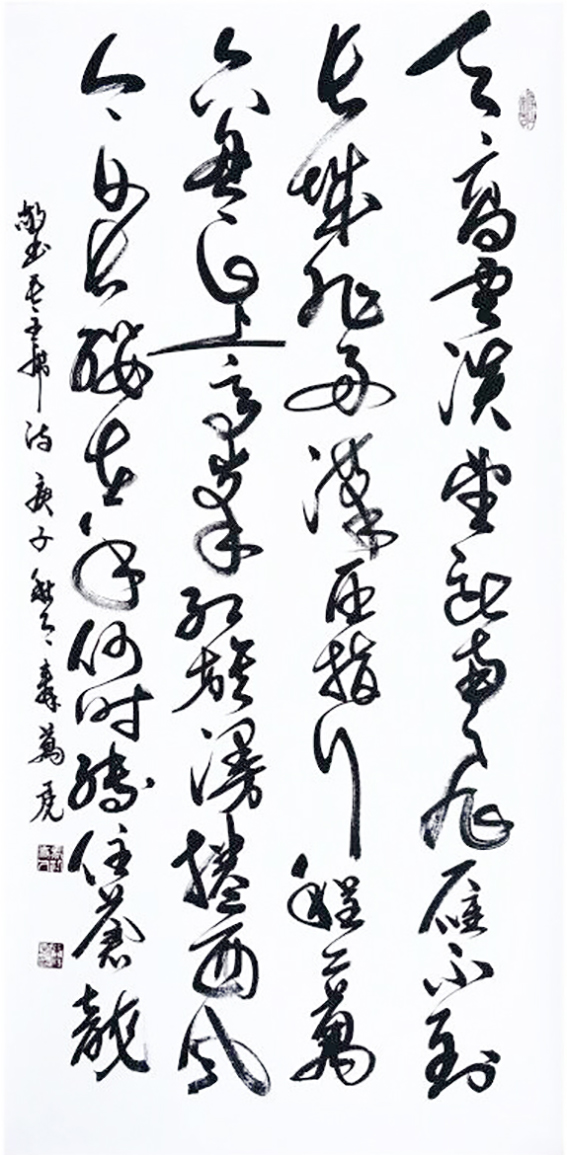 天高雲淡望断南飛雁不到
长城非好漢屈指行程二萬
六盘山上高峰红旗漫捲西风
今日长缨在手何时缚住蒼龍
敬书毛主席诗庚子秋萬虎